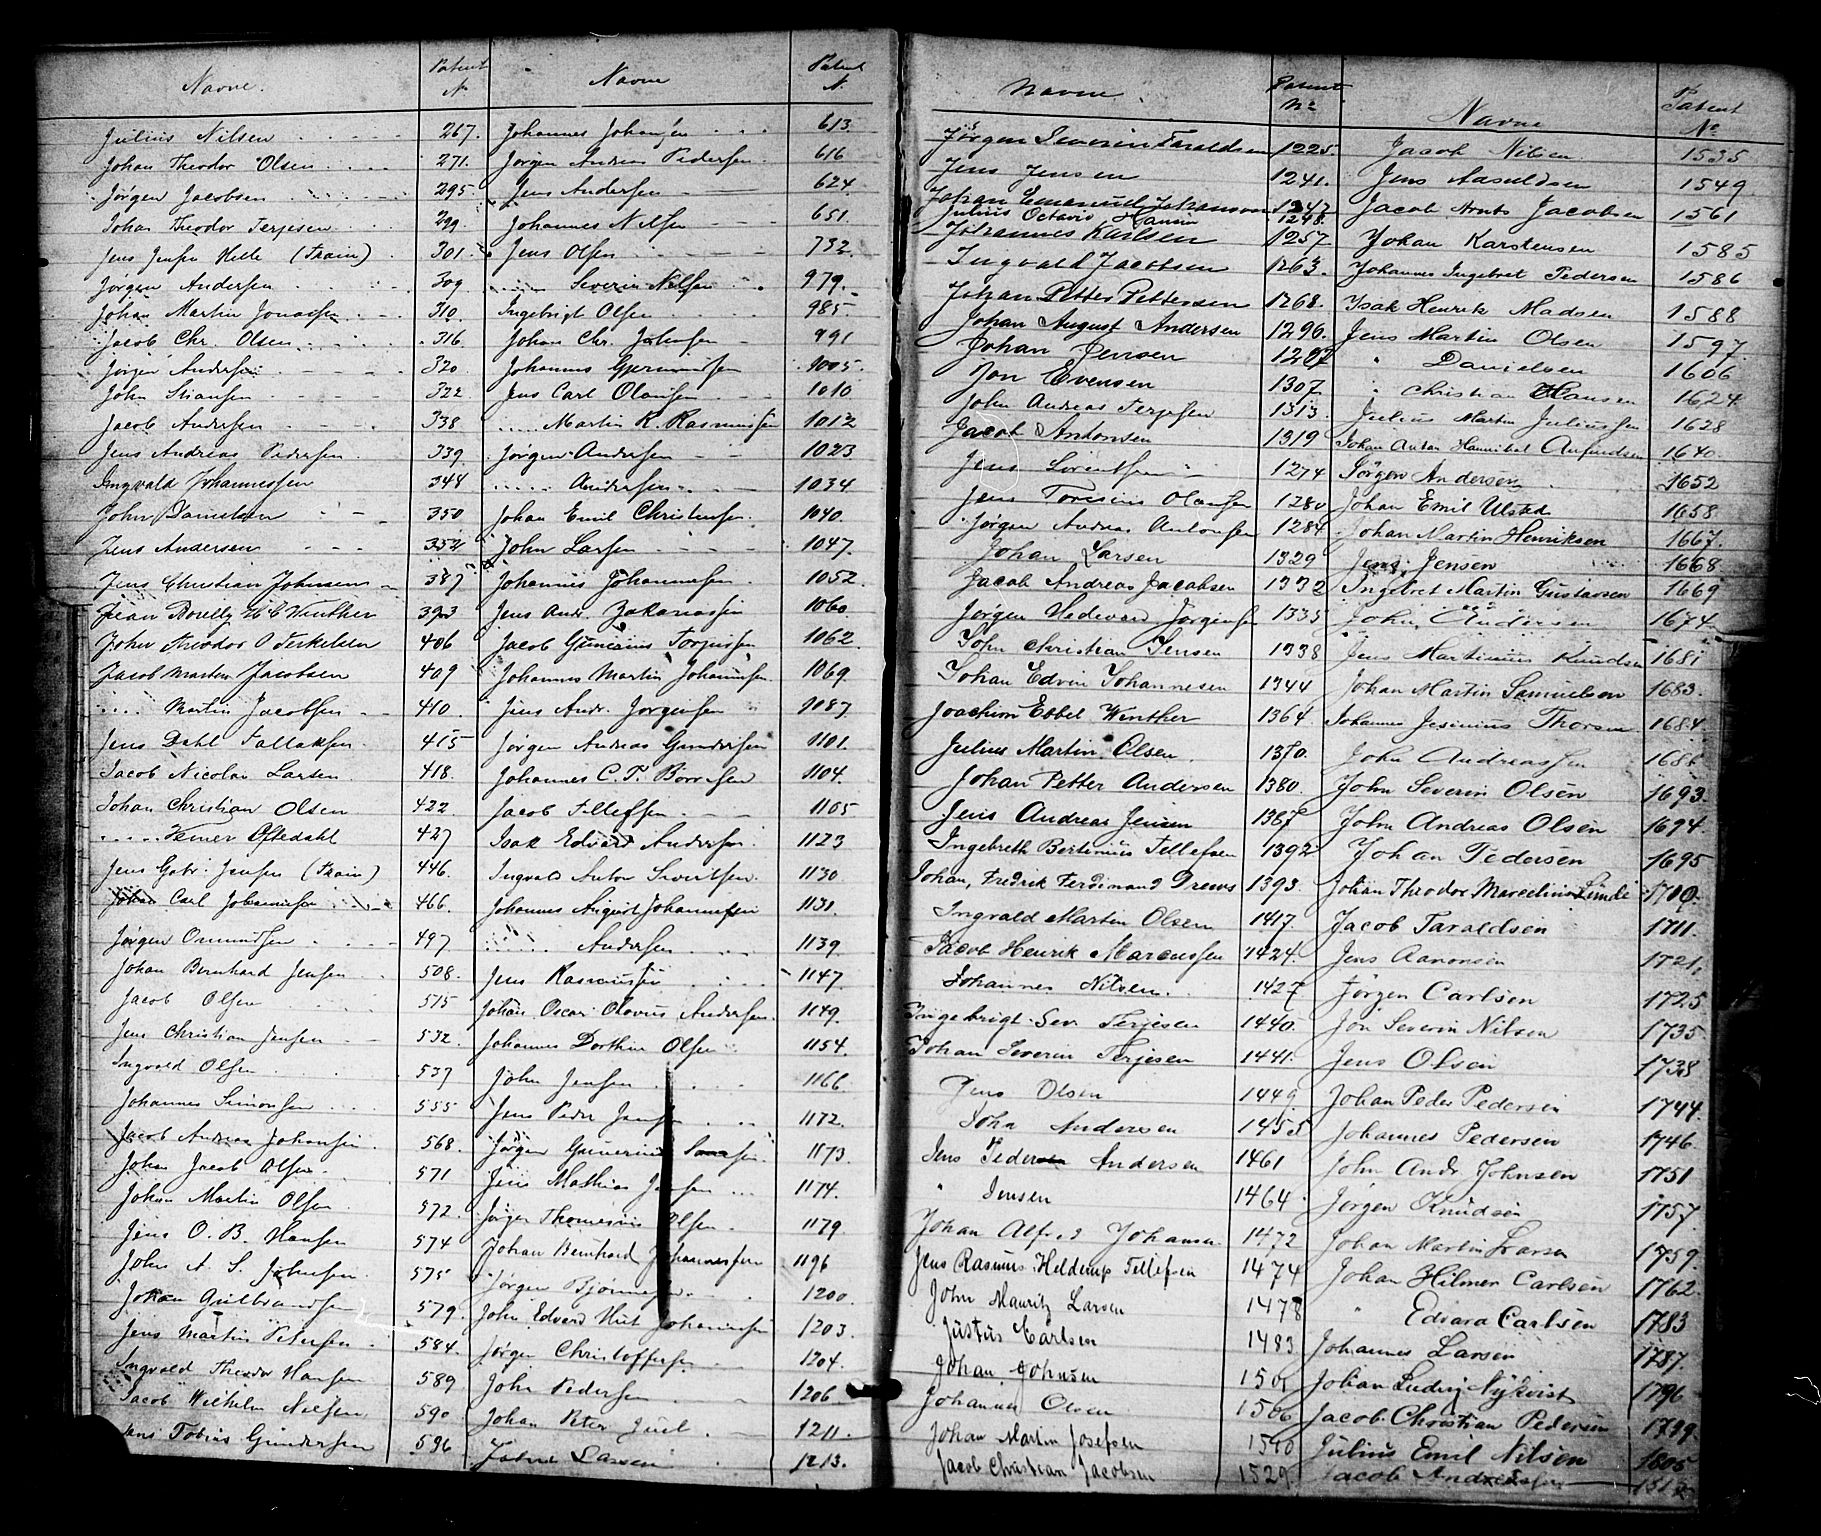 Navne. Patent N.
Julius Nilsen 267.
Johan Theodor Olsen 271.
Jørgen Jacobsen 295.
Johan Theodor Terjesen 299
Jens Jensen Helle (Train) 301.
Jørgen Andersen 309
Johan Martin Jonassen 310.
Jacob Chr. Olsen 316.
Jørgen Andersen 320.
John Hansen 322
Jacob Andersen 338
Jens Andreas Pedersen 339.
Ingvald Johannessen 348
John Danielsen 350
Jens Andersen 352
Jens Christian Johnsen 387
Jean Borelly H C Winther 393
John Theodor O Terkelsen 406
Jacob Martin Jacobsen 409
" Martin Jacobsen 410.
Jens Dahl Tallaksen. 415
Jacob Nicolai Larsen 418.
Johan Christian Olsen 422
" Werner Oftedahl 427
Jens Gabr. Jensen (Train) 446.
Johan Carl Johannesen 466.
Jørgen Omundsen 497
Johan Bernhard Jensen 508.
Jacob Olsen 515
Jens Christian Jensen 532.
Ingvald Olsen 537
Johannes Simonsen 555
Jacob Andreas Johansen 568.
Johan Jacob Olsen 571
Johan Martin Olsen 572.
Jens O. B. Hansen 574
John A. S. Johnsen 575
Johan Gulbrandsen 579.
Jens Martin Petersen 584.
Ingvald Theodor Hansen 589.
Jacob Wilhelm Nilsen 590
Jens Tobias Gundersen 596
Navne Patent N.
Johannes Johansen 613.
Jørgen Andreas Pedersen 616
Jens Andersen 624.
Johannes Nilsen 651.
Jens Olsen 732.
" Severin Nilsen 979.
Ingebrigt Olsen 985
Johan Chr. Johnsen 991
Johannes Gunvaldsen 1005.
Jens Carl Olausen 1010
" Martin R. Rasmussen 1012
Jørgen Andersen 1023
" Andersen 1034
Johan Emil Christensen 1040.
John Larsen 1047.
Johannes Johannesen 1052.
Jens Andr. Zakariassen 1060
Jacob Gunerius Torjussen 1062
Johannes Martin Johannesen 1069.
Jens Andr. Jørgensen 1087
Jørgen Andreas Gundersen 1101.
Johannes C. T. Børresen 1104.
Jacob Tellefsen 1105
Isak Edvard Andersen 1123
Ingvald Anton Sivertsen 1130.
Johannes August Johannesen 1131.
" Andersen 1139
Jens Rasmussen 1147
Johan Oscar Olavus Andersen 1149.
Johannes Dorthin Olsen 1154.
John Jensen 1166
Jens Peder Jensen 1172.
Jørgen Gunerius 1173.
Jens Mathias Jensen 1174.
Jørgen Thomesius Olsen 1179
Johan Bernhard Johannesen 1196
Jørgen Bjørnesen 1200.
John Edvard Johannesen 1203.
Jørgen Christoffersen 1204.
John Pedersen 1206.
Johan Peter Juel 1211.
Johan Larsen 1213.
Navne Patent No
Jørgen Severin Taraldsen 1225.
Jens Jensen 1241.
Johan Emanuel Johansen 1247
Julius Octavis Hansen 1248.
Johannes Karlsen 1257.
Ingvald Jacobsen 1263.
Johan Petter Pettersen 1268.
Johan August Andersen 1290.
Johan Jensen 1297
Jon Evensen 1307.
John Andreas Terjesen 1313.
Jacob Antonsen 1319
Jens Lorentsen 1274
Jens Toresius Olausen 1280
Jørgen Andreas Antonsen 1284.
Johan Larsen 1329
Jacob Andreas Jacobsen 1332
Jørgen Hedevard Jørgensen 1335
John Christian Jensen 1338
Johan Edvin Johannesen 1344
Joachim Ebbel Winther 1364
Julius Martin Olsen. 1370.
Johan Petter Andersen 1380.
Jens Andreas Jensen 1387
Ingebreth Bertinius Tellefsen 1392
Johan, Fredrik Ferdinand Drews 1393.
Ingvald Martin Olsen 1417.
Jacob Henrik Marcussen 1424.
Johannes Nilsen. 1427
Ingebrigt Sev. Terjesen 1440.
Johan Severin Terjesen 1441.
Jens Olsen 1449.
John Andersen 1455
Jens Peder Andersen 1461
" Jensen 1464.
Johan Alfred Johansen 1472
Jens Rasmus Heldemp Tellefsen 1474
John Mauritz Larsen 1478
Justus Carlsen 1483
Johan Johnsen 1501
Johannes Olsen 1506
Johan Martin Josefsen 1510
Jacob Christian Jacobsen 1529.
Navne Patent No
Jacob Nilsen 1535
Jens Aasuldsen 1549
Jacob Arnts Jacobsen 1561
Johan Karstensen 1585
Johannes Ingebret Pedersen 1586
Isak Henrik Madsen 1588
Jens Martin Olsen 1597.
" Danielsen 1606
" Christian Hansen 1624
Julius Martin Juliussen 1628
Johan Anton Hannibal Anfindsen 1640.
Jørgen Andersen 1652
Johan Emil Ulsted 1658
Johan Martin Henriksen 1667.
Jens Jensen 1668
Ingebret Martin Gustavsen 1669
John Andersen 1674.
Jens Martinius Knudsen 1681
Johan Martin Samuelson 1683.
Johannes Jesinius Thorsen 1684.
John Andreassen 1686
John Severin Olsen 1693.
John Andreas Olsen 1694
Johan Pedersen 1695
Johan Theodor Marcelius Lunde 1700.
Jacob Taraldsen 1711.
Jens Aanonsen 1721,
Jørgen Carlsen 1725
Jon Severin Nilsen 1735
Jens Olsen 1738
Johan Peder Pedersen 1744.
Johannes Pedersen 1746.
John Andr Johnsen 1751
Jørgen Knudsen 1757.
Johan Martin Larsen 1759.
Johan Hilmer Carlsen 1762.
" Edvard Carlsen 1783
Johannes Larsen 1787.
Johan Ludvig Nykvist 1796
Jacob Christian Pedersen 1799.
Julius Emil Nilsen 1805
Jacob Andreassen 1812